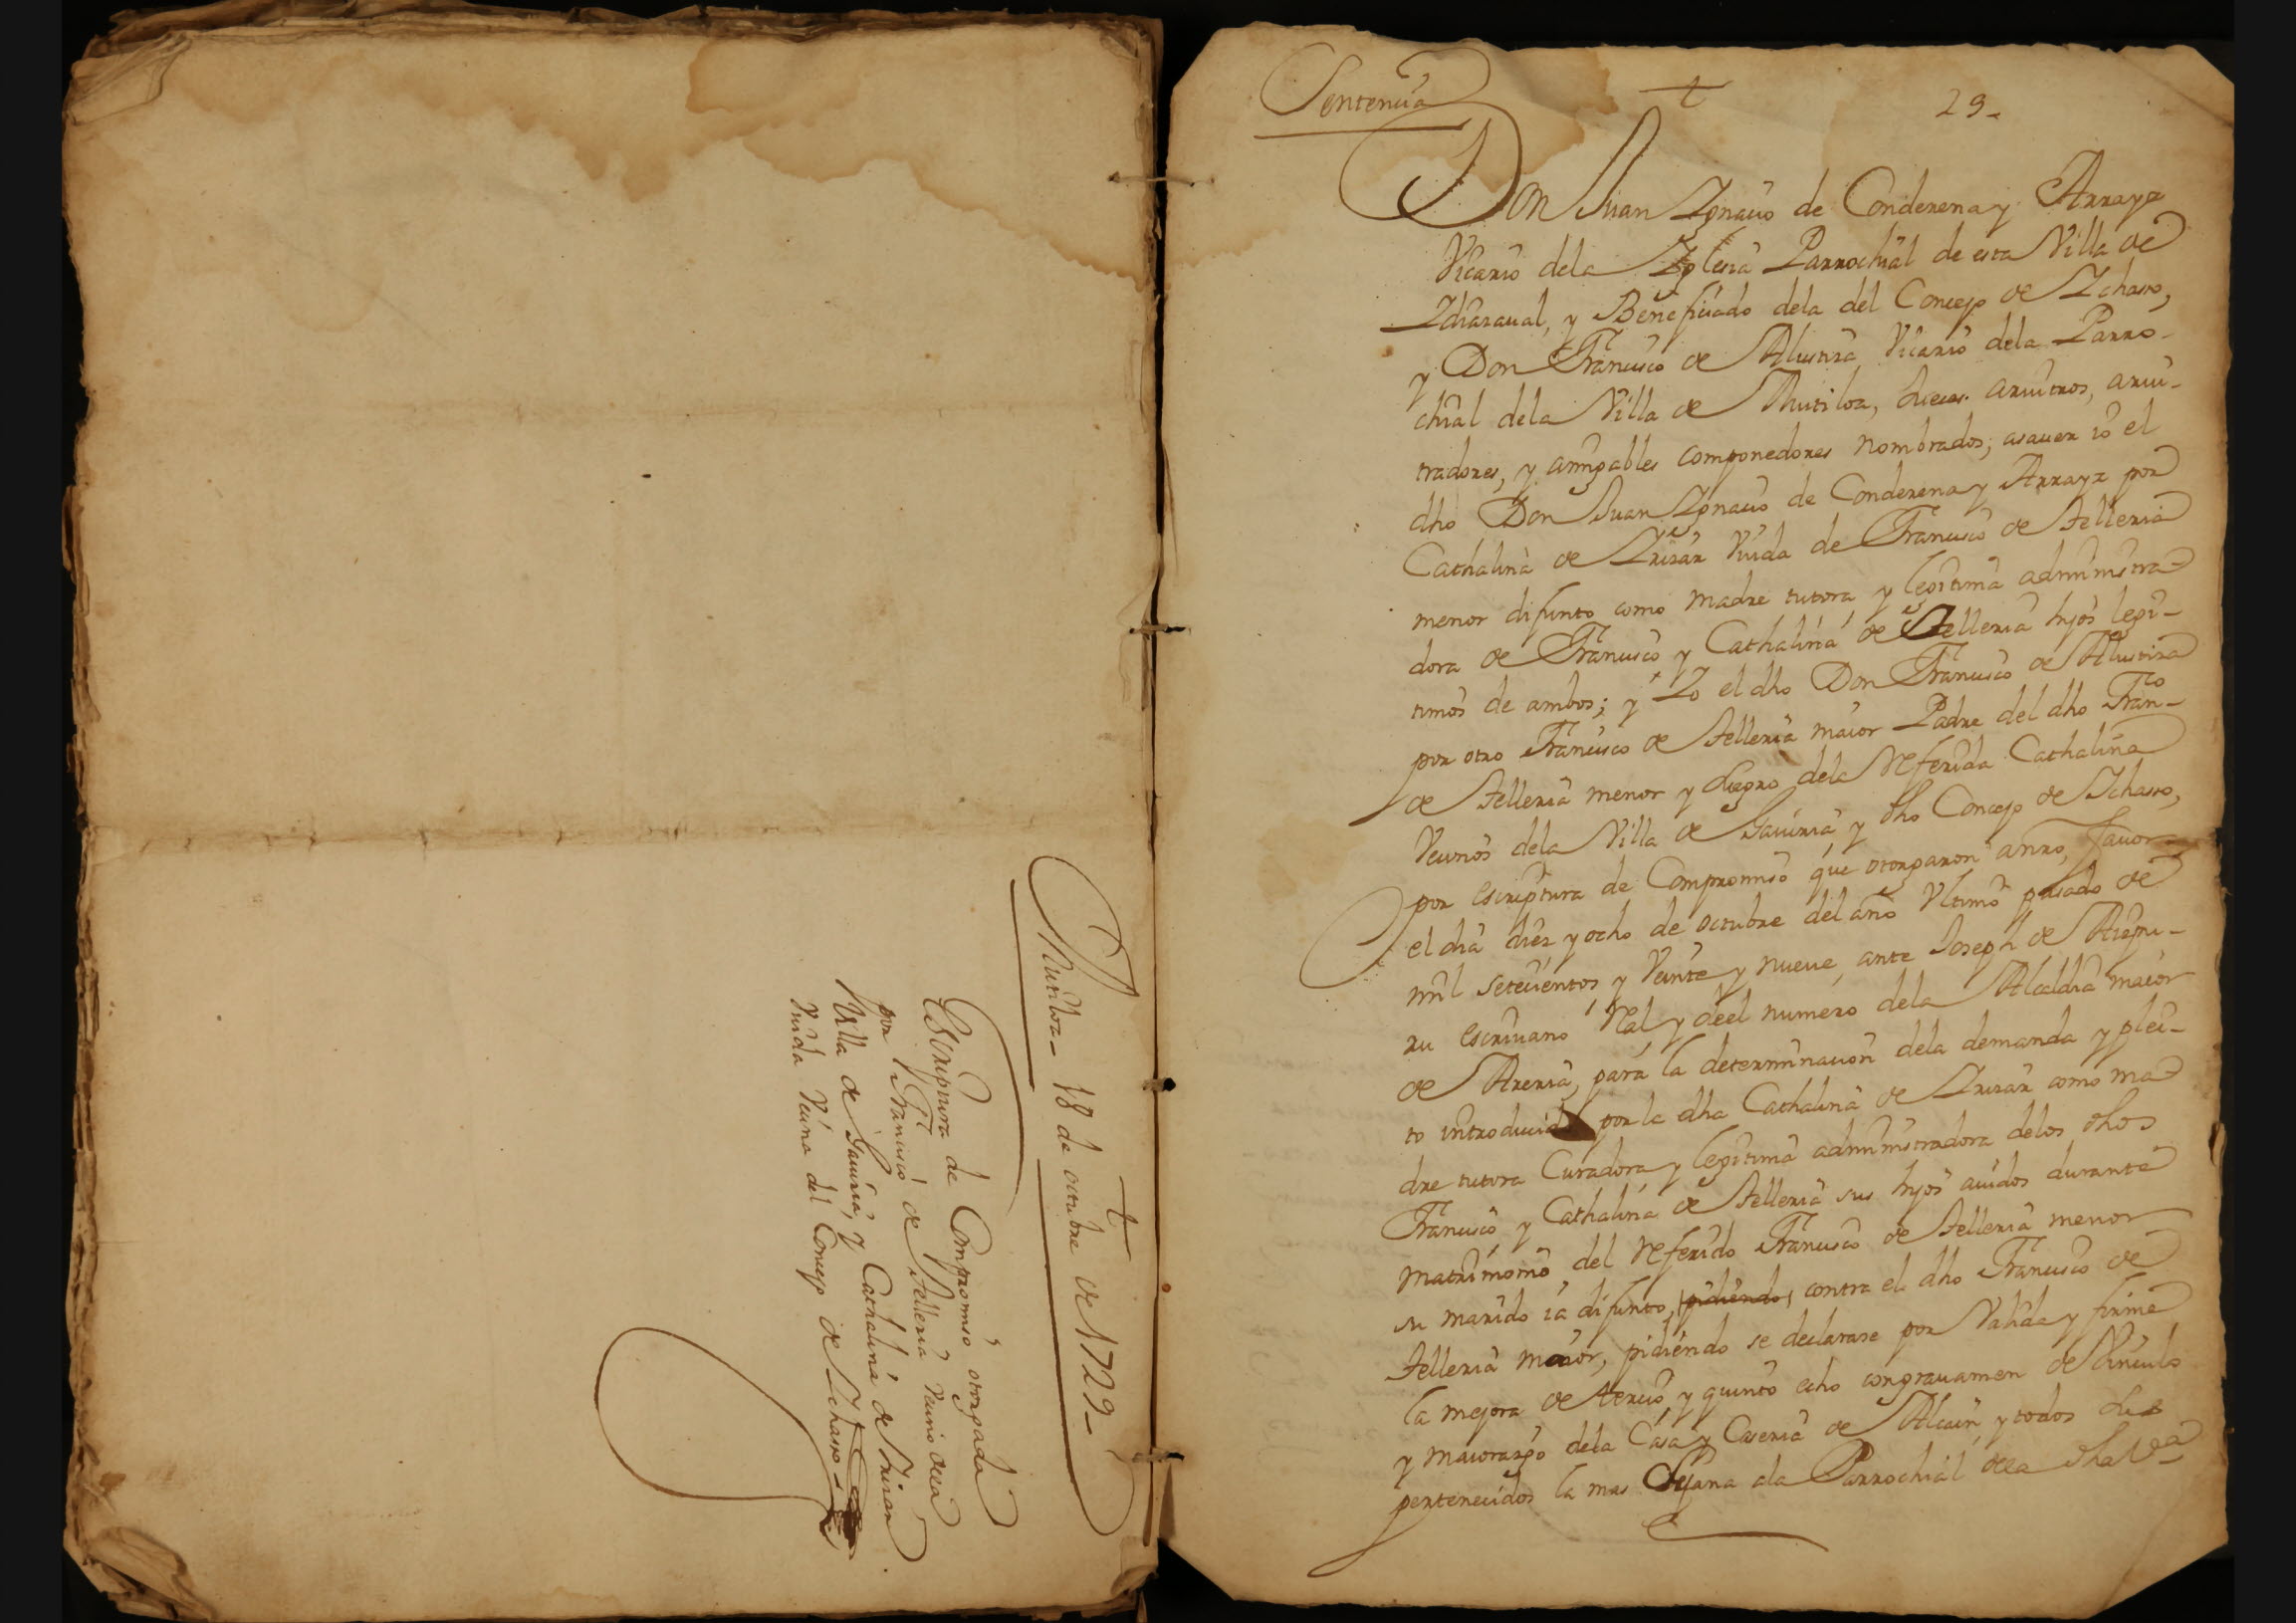 t
Mutiloa - 18 de octubre de 1729 -
Escriptura de Compromiso otorgada
por Francisco de Telleria Vecino dela
Villa de Gaviria, y Cathalina de Irizar
Viuda Vecina del Concejo de Ichasso -
Sentencia
t
29 -
Don Juan Ignacio de Conderena y Arrayz
Vicario dela Iglesia Parrochial de esta Villa de
Idiazaval, y Beneficiado dela del Concejo de Ichasso,
y Don Francisco de Alustiza Vicario dela Parro-
chial dela Villa de Mutiloa, Jueces arvitros, arvi-
tradores, y amigables componedores nombrados; asaver io el
dho Don Juan Ignacio de Conderena y Arrayz por
Cathalina de Irizar Viuda de Francisco de Telleria
menor difunto como madre tutora y legitima administra-
dora de Francisco y Cathalina de Telleria hijos legi-
timos de ambos; y Yo el dho Don Francisco de Alustiza
por otro Francisco de Telleria maior Padre del dho Franco
de Telleria menor y suegro dela Referida Cathalina
Vecinos dela Villa de Gaviria y dho Concejo de Ichasso,
por escriptura de Compromiso que otorgaron anro favor
el dia diez y ocho de octubre del año Ultimo pasado de
mil setecientos y Veinte y nueve, ante Joseph de Aiègui-
ru escrivano Ral y deel numero dela Alcaldia maior
de Areria, para la determinacion dela demanda y plei-
to introducido por la dha Cathalina de Irizar como ma-
dre tutora Curadora y legitima administradora delos dhos
Francisco y Cathalina de Telleria sus hijos avidos durante
matrimonio del Referido Francisco de Telleria menor
su marido ia difunto, pidiendo contra el dho Francisco de
Telleria maior, pidiendo se declarase por Valida y firme
la mejora de tercio y quinto echo congravamen de Vinculo
y maiorazgo dela Casa y Caseria de Alcain y todos sus
pertenecidos la mas lejana ala Parrochial dela dha Va